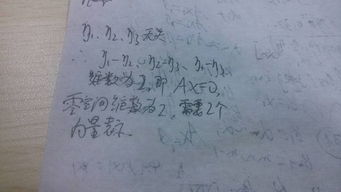 η₁、η₂、η₃无关
∴ η₁-η₂、η₂-η₃、η₁-η₃
维数为2,即 AX=0,
零空间维数为2,需要2个
向量表示